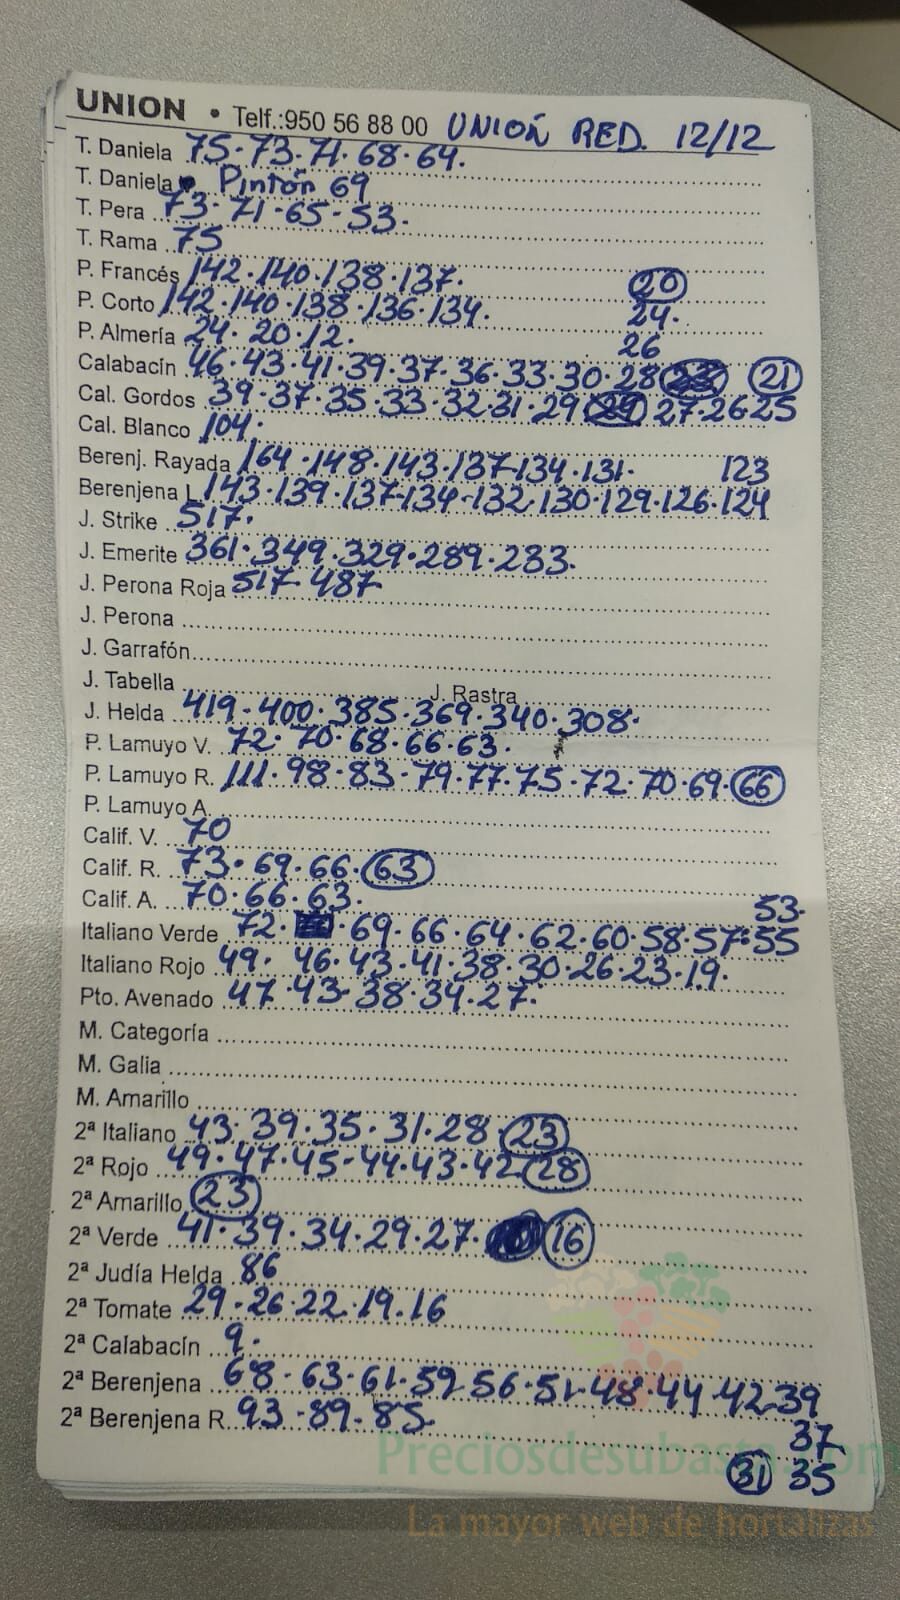 UNION • Telf.:950 56 88 00 UNIÓN RED. 12/12
T. Daniela 75·73·71·68·64.
T. Daniela Pintón 69
T. Pera 73·71·65·53.
T. Rama 75
P. Francés 142·140·138·137. 20
P. Corto 142·140·138·136·134. 24.
P. Almería 24·20·12. 26
Calabacín 46·43·41·39·37·36·33·30·28 21
Cal. Gordos 39·37·35·33·32·31·29 27·26·25
Cal. Blanco 104.
Berenj. Rayada 164·148·143·137·134·131. 123
Berenjena L 143·139·137·134·132·130·129·126·124
J. Strike 517.
J. Emerite 361·349·329·289·283.
J. Perona Roja 517·487
J. Perona
J. Garrafón
J. Tabella J. Rastra
J. Helda 419·400·385·369·340·308.
P. Lamuyo V. 72·70·68·66·63.
P. Lamuyo R. 111·98·83·79·77·75·72·70·69·66
P. Lamuyo A.
Calif. V. 70
Calif. R. 73·69·66·63
Calif. A. 70·66·63. 53.
Italiano Verde 72·69·66·64·62·60·58·57·55
Italiano Rojo 49·46·43·41·38·30·26·23·19.
Pto. Avenado 47·43·38·34·27.
M. Categoría
M. Galia
M. Amarillo
2ª Italiano 43·39·35·31·28·23
2ª Rojo 49·47·45·44·43·42·28
2ª Amarillo 23
2ª Verde 41·39·34·29·27· 16
2ª Judía Helda 86
2ª Tomate 29·26·22·19·16
2ª Calabacín 9.
2ª Berenjena 68·63·61·59·56·51·48·44·42·39
2ª Berenjena R. 93·89·85. 37
Preciosdesubasta.com
31 35
La mayor web de hortalizas